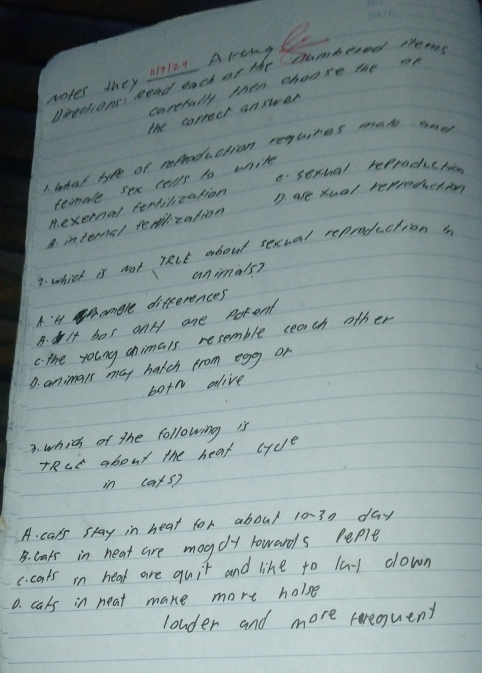 notes they 11/9/29 Alcung
Directions: Read each of the numbered items
carefully then choose the of
the correct answer
1. what type of reproduction requires male and
female sex cells to unite
A. external fertilization c. sexual reproduction
B. internal fertilization D. asexual reproduction
2. which is not TRUE about sexual reproduction in
animals?
A. It differences
B. It has only one Parent
C. the young animals resemble each other
D. animals may hatch from egg or
both alive
3. which of the following is
TRUE about the heat cycle
in cats?
A. cats stay in heat for about 10-30 day
B. cats in heat are mogdy towards Peple
C. cats in heat are quit and like to lay down
D. cats in heat make more hoise
louder and more frequent